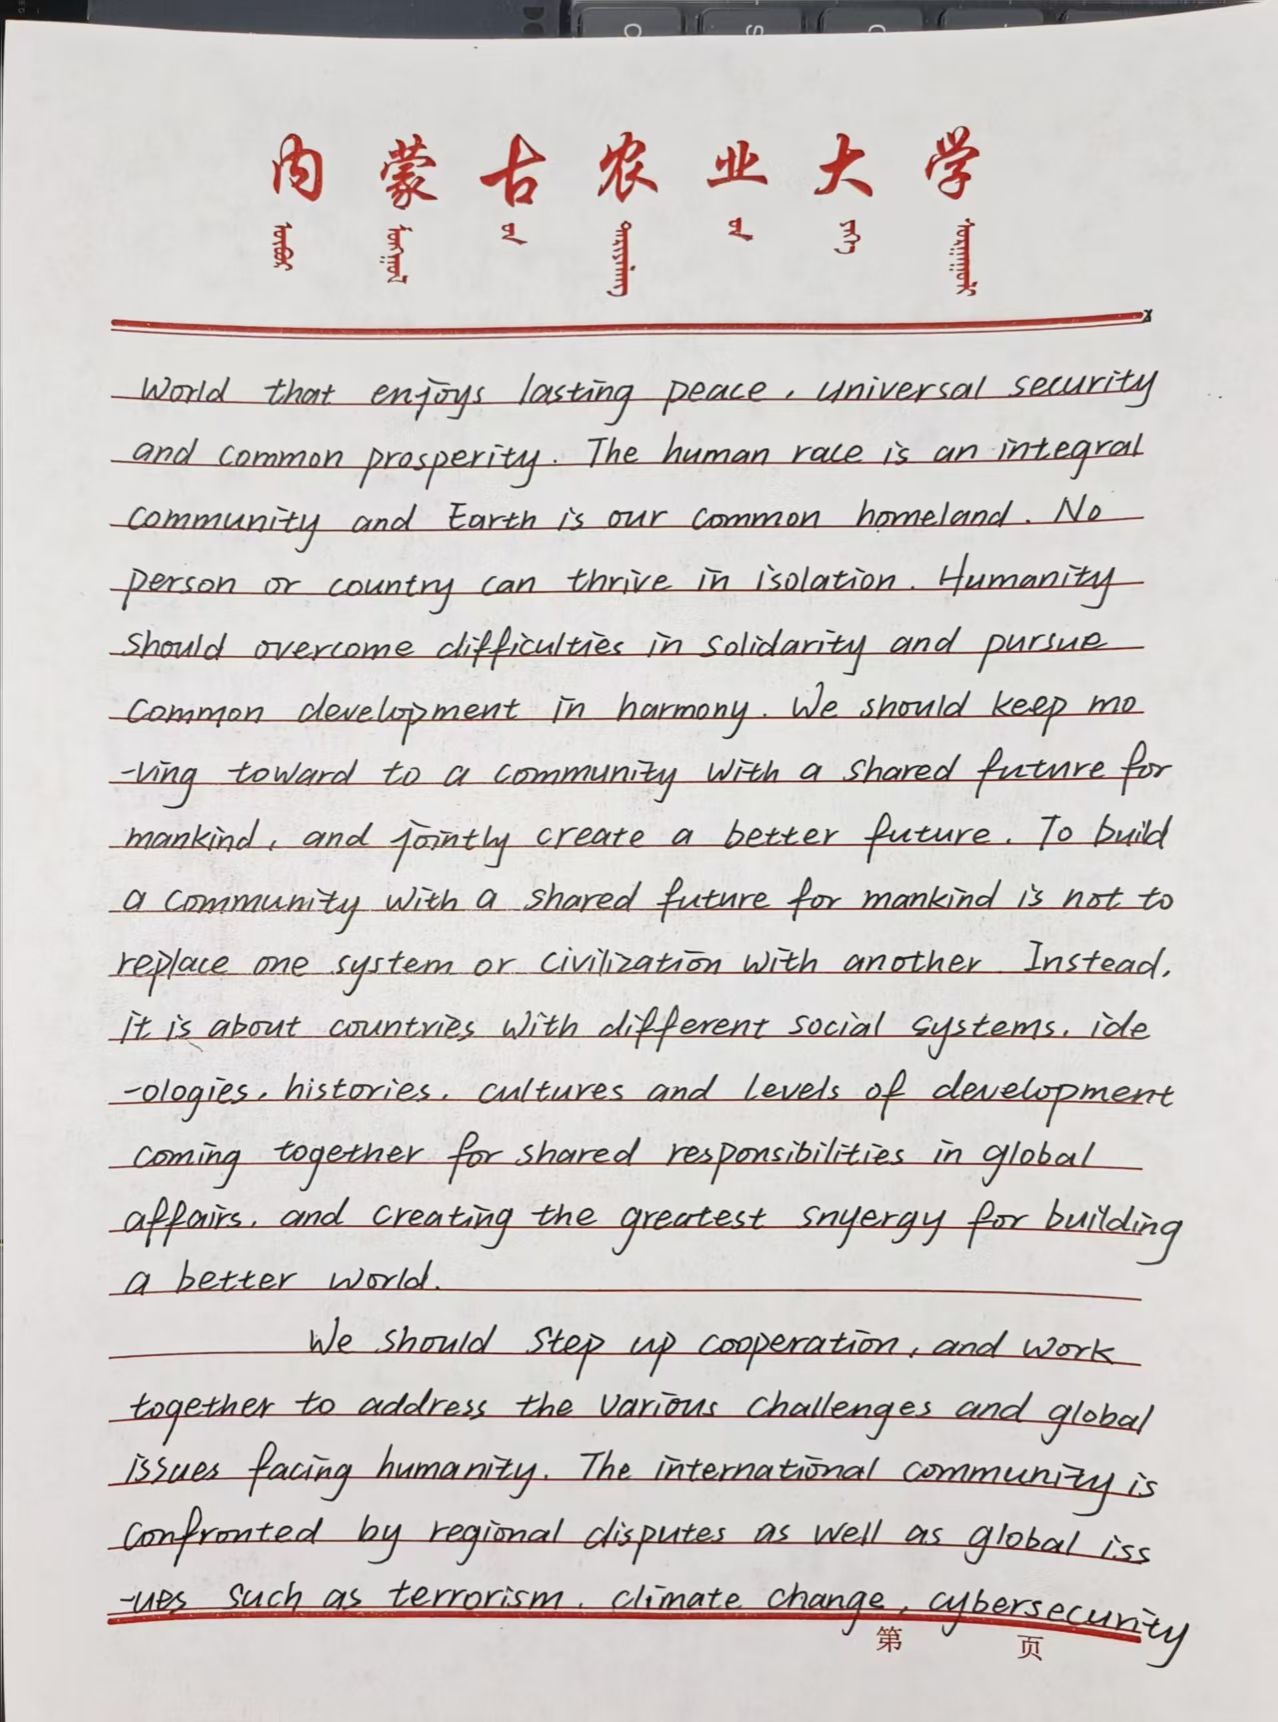 内蒙古农业大学
World that enjoys lasting peace, universal security
and common prosperity. The human race is an integral
community and Earth is our common homeland. No
person or country can thrive in isolation. Humanity
should overcome difficulties in solidarity and pursue
common development in harmony. We should keep mo
-ving toward to a community with a shared future for
mankind, and jointly create a better future. To build
a community with a shared future for mankind is not to
replace one system or civilization with another. Instead,
it is about countries with different social systems, ide
-ologies, histories, cultures and levels of development
coming together for shared responsibilities in global
affairs, and creating the greatest snyergy for building
a better world.
We should step up cooperation, and work
together to address the various challenges and global
issues facing humanity. The international community is
confronted by regional disputes as well as global iss
-ues such as terrorism, climate change, cybersecurity
第 页